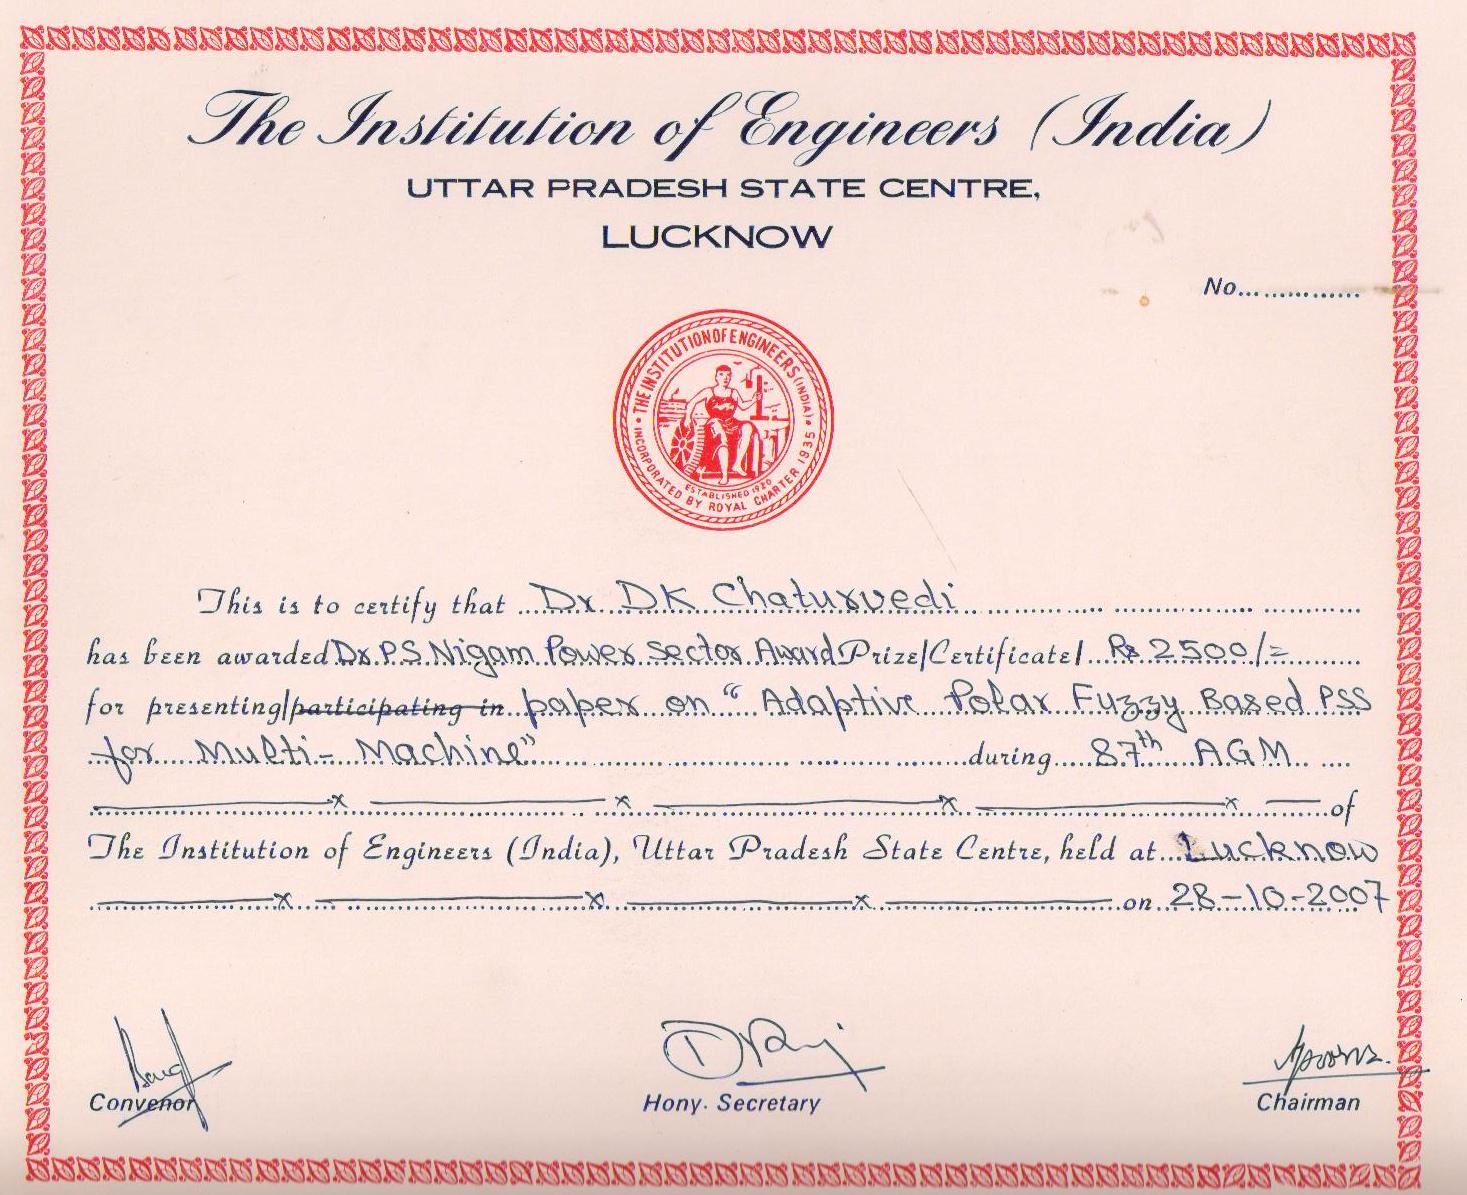 The Institution of Engineers (India)
UTTAR PRADESH STATE CENTRE,
LUCKNOW
No..............
THE INSTITUTION OF ENGINEERS (INDIA)
INCORPORATED BY ROYAL CHARTER 1935
ESTABLISHED 1920
This is to certify that Dr DK Chaturvedi
has been awarded Dr P.S. Nigam Power Sector Award Prize/Certificate/ Rs 2500/=
for presenting/participating in paper on "Adaptive Polar Fuzzy Based PSS
for Multi-Machine" during 87th AGM
x x x x of
The Institution of Engineers (India), Uttar Pradesh State Centre, held at Lucknow
x x x on 28-10-2007
Convenor Hony. Secretary Chairman